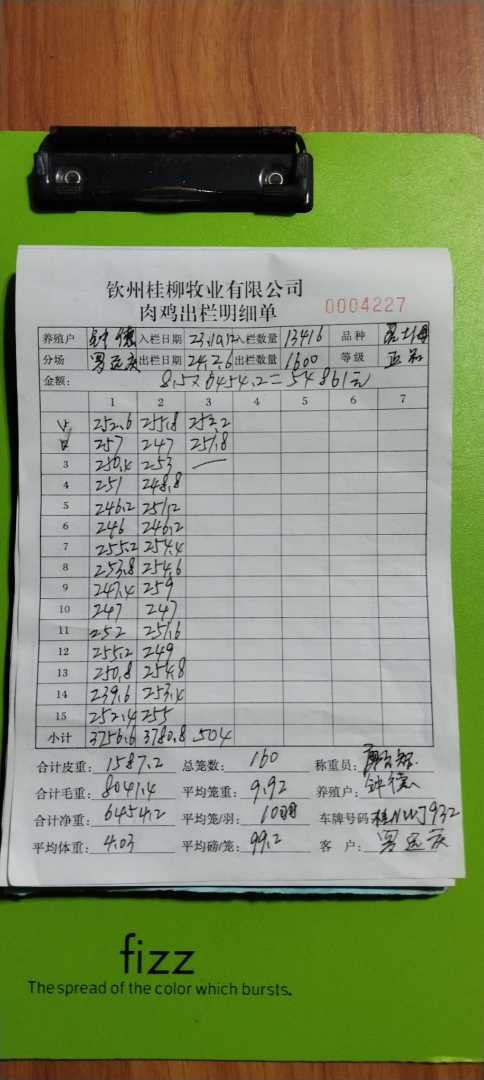 钦州桂柳牧业有限公司
肉鸡出栏明细单 0004227
养殖户 钟德 入栏日期 23.10.12 入栏数量 13416 品种
分场 罗远庆 出栏日期 24.2.6 出栏数量 1600 等级
金额: 8.5×6454.2=54861元
1 2 3 4 5 6 7
252.6 255.8 252.2
257 247 251.8
3 250.4 253 —
4 251 248.8
5 246.2 251.2
6 246 246.2
7 255.2 254.4
8 253.8 254.6
9 247.4 259
10 247 247
11 252 251.6
12 255.2 249
13 250.8 254.8
14 239.6 253.4
15 252.4 255
小计 3756.6 3780.8 504
合计皮重: 1587.2 总笼数: 160 称重员:
合计毛重: 8041.4 平均笼重: 9.92 养殖户: 钟德
合计净重: 6454.2 平均笼/羽: 10羽 车牌号码 桂NWJ932
平均体重: 4.03 平均磅/笼: 99.2 客户: 罗远庆
fizz
The spread of the color which bursts.